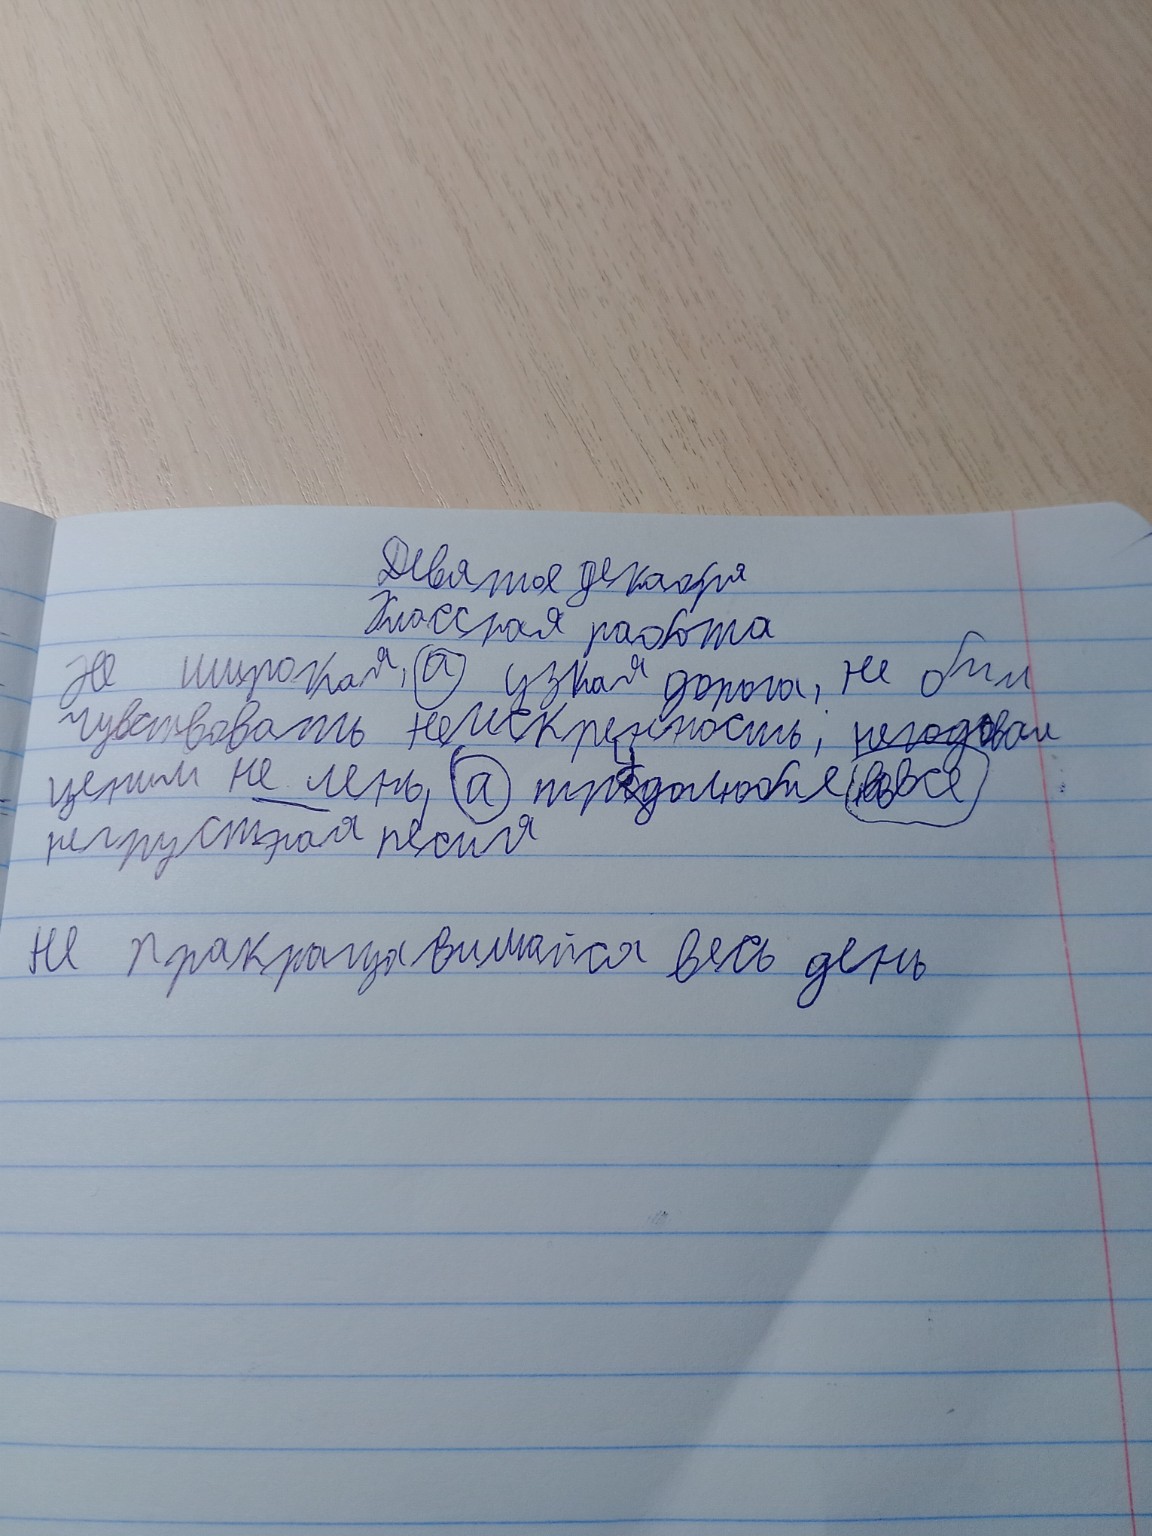 Девятое декабря
Классная работа
Не широкая, а узкая дорога, не был
чувствовать неискренность, негодовал
ценим не лень, а трудолюбие вовсе
негрустная песня
Не пракращавшийся весь день